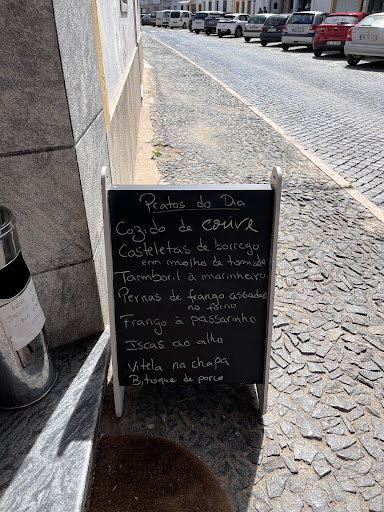 Pratos do Dia
Cozido de couve
Casteletas de borrego
em molho de tomate
Tamboril à marinheiro
Pernas de frango assadas
no forno
Frango à passarinho
Iscas ao alho
Vitela na chapa
Bitoque de porco